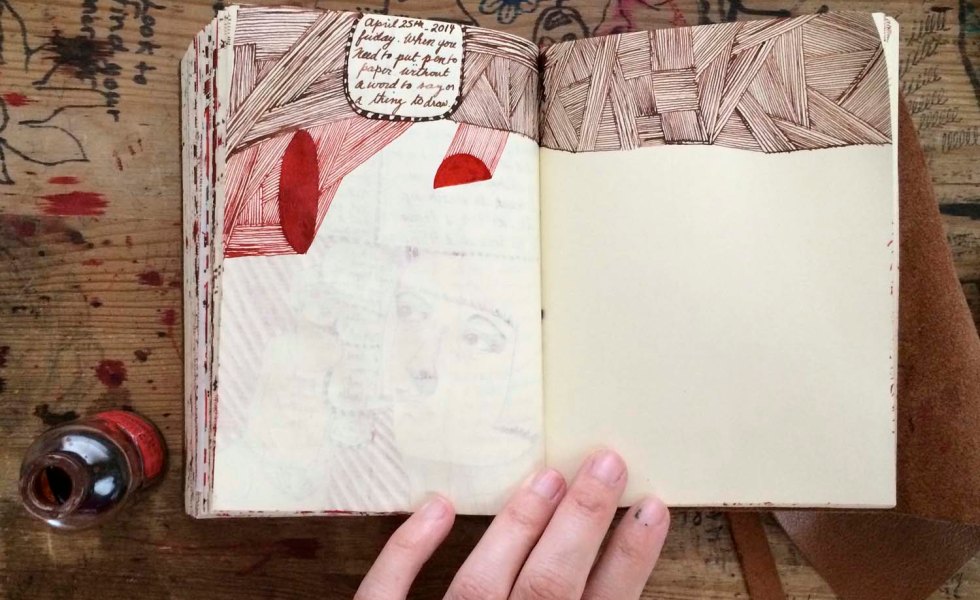 April 25th - 2014
friday. When you
need to put pen to
paper without
a word to say or
a thing to draw
look to
find your